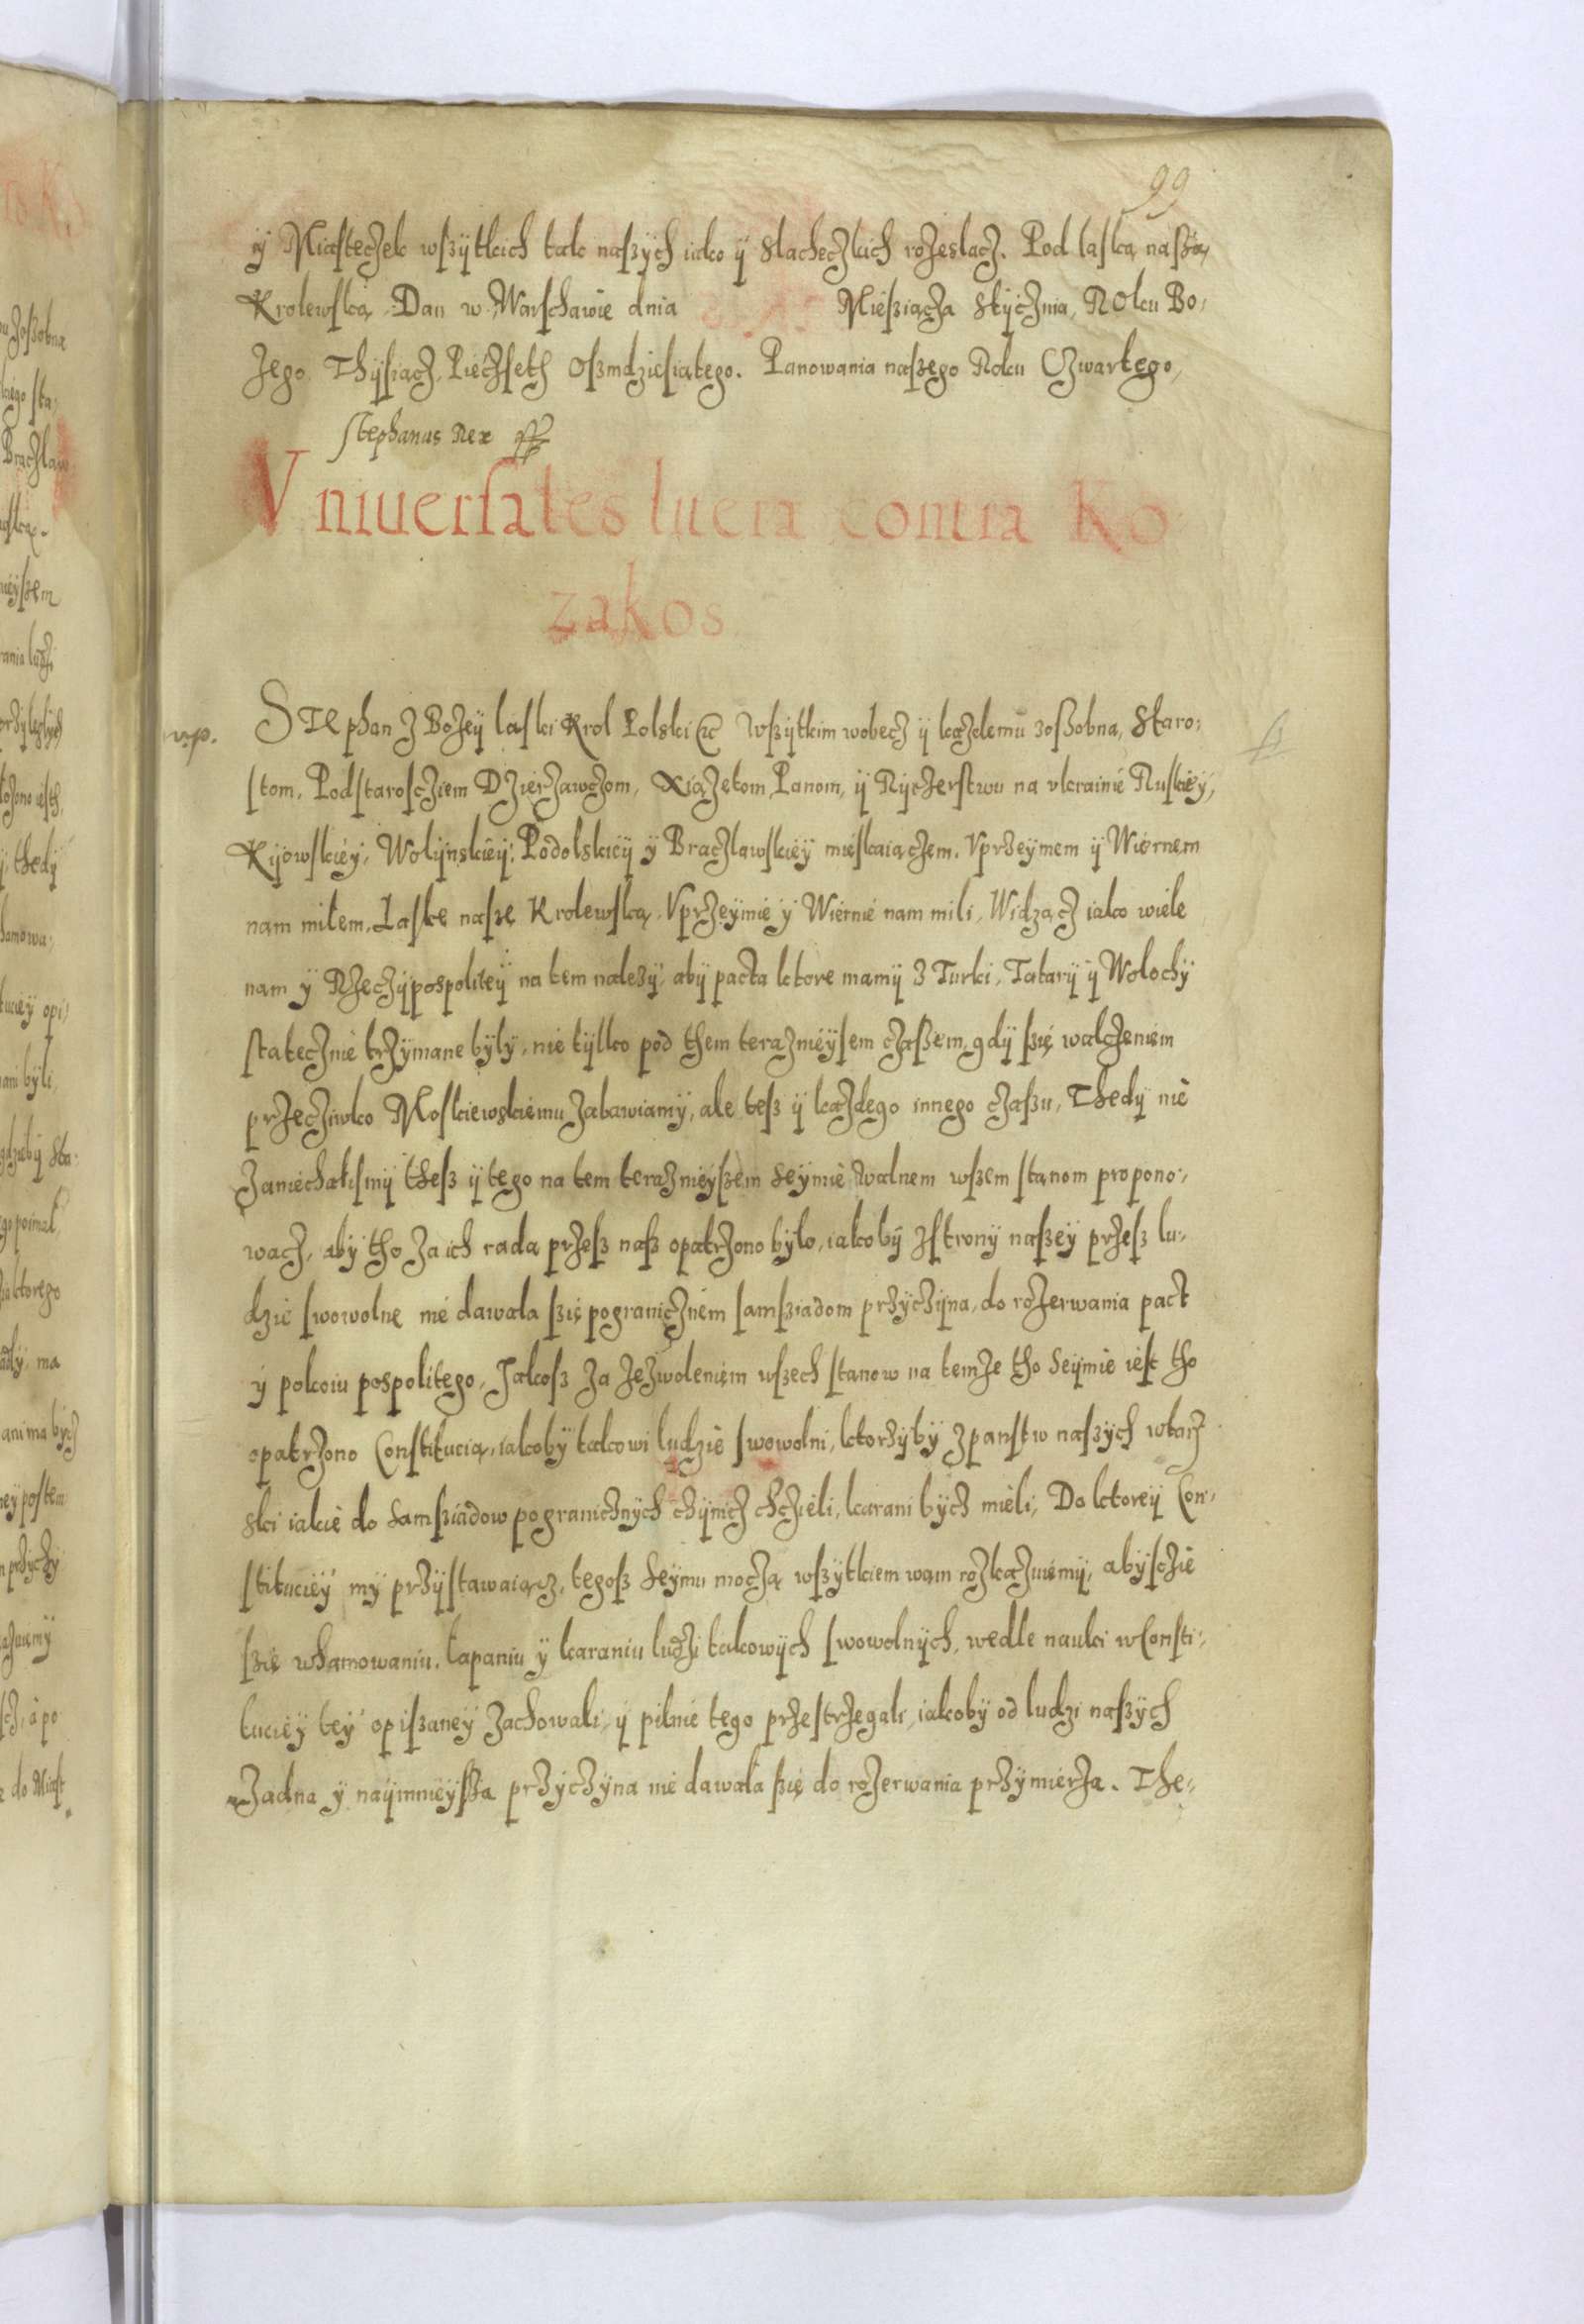 99
ÿ Miasteczek wszÿtkich tak naszÿch iako ÿ Slacheczkich rozeslacz. Pod laską naszą
Krolewską. Dan w Warschawie dnia Miesziącza Stÿcznia, ROku Bo:
zego Thÿsiącz Piéczseth Oszmdziesiątego. Panowania naszego Roku Czwartego,
Stephanus Rex
Vniuersales litera contra Ko
zakos
vvp.
STEphan z Bozeÿ laski Krol Polski etc Wszÿtkim wobecz ÿ kazdemu zoszobna, Staro:
stom, Podstarosczíem Dzierzawczom, Xiązetom Panom, ÿ Rÿczerstwu na vkrainie Ruskieÿ,
Kÿowskieÿ, Wolÿnskieÿ, Podolskieÿ ÿ Braczlawskieÿ mieskaiączem. Vprzeÿmem ÿ Wiernem
nam miłem. Łaskę naszę Krolewską. Vprzeÿmie ÿ Wiernie nam mili, Widzącz iako wiele
nam ÿ Rzeczÿpospoliteÿ na tem nalezÿ, abÿ pacta ktore mamÿ z Turki, Tatarÿ ÿ Wolochÿ
statecznie trzÿmane bÿłÿ, nie tÿlko pod them teraznieÿsem czaszem, gdÿ szię walczeniem
przecziwko Moskiewskiemu zabawiamÿ, ale tesz ÿ kazdego innego czaszu, Thedÿ nie
zaniechalismÿ thesz ÿ tego na tem teraznieÿszem Seÿmie walnem wszem stanom propono:
wacz, abÿ tho za ich radą przesz nasz opatrzono bÿło, iakobÿ z stronÿ naszeÿ przesz lu:
dzie swowolne nie dawala szię pogranicznem samsziadom przÿczÿna, do rozerwania pact
ÿ pokoiu pospolitego, Jakosz za zezwoleniem wszech stanow na temze tho Seÿmie iest tho
opatrzono Constitucią, iakobÿ takowi ludzie swowolni, ktorzÿbÿ z panstw naszÿch wtarz
ski iakie do Samsziadow pogranicznÿch czÿnicz chczieli, karani bÿcz mieli, Do ktoreÿ Con:
stitucieÿ mÿ przÿstawaiącz, tegosz Seÿmu moczą wszÿtkiem wam rozkazuiemÿ, abÿsczie
szię whamowaniu, łapaniu ÿ karaniu ludzi takowÿch swowolnÿch, wedle nauki w Consti:
tucieÿ teÿ opiszaneÿ zachowali, ÿ pilnie tego przestrzegali, iakobÿ od ludzi naszÿch
zadna ÿ naÿmnieÿsza przÿczÿna nie dawala szię do rozerwania przÿmierza. The: